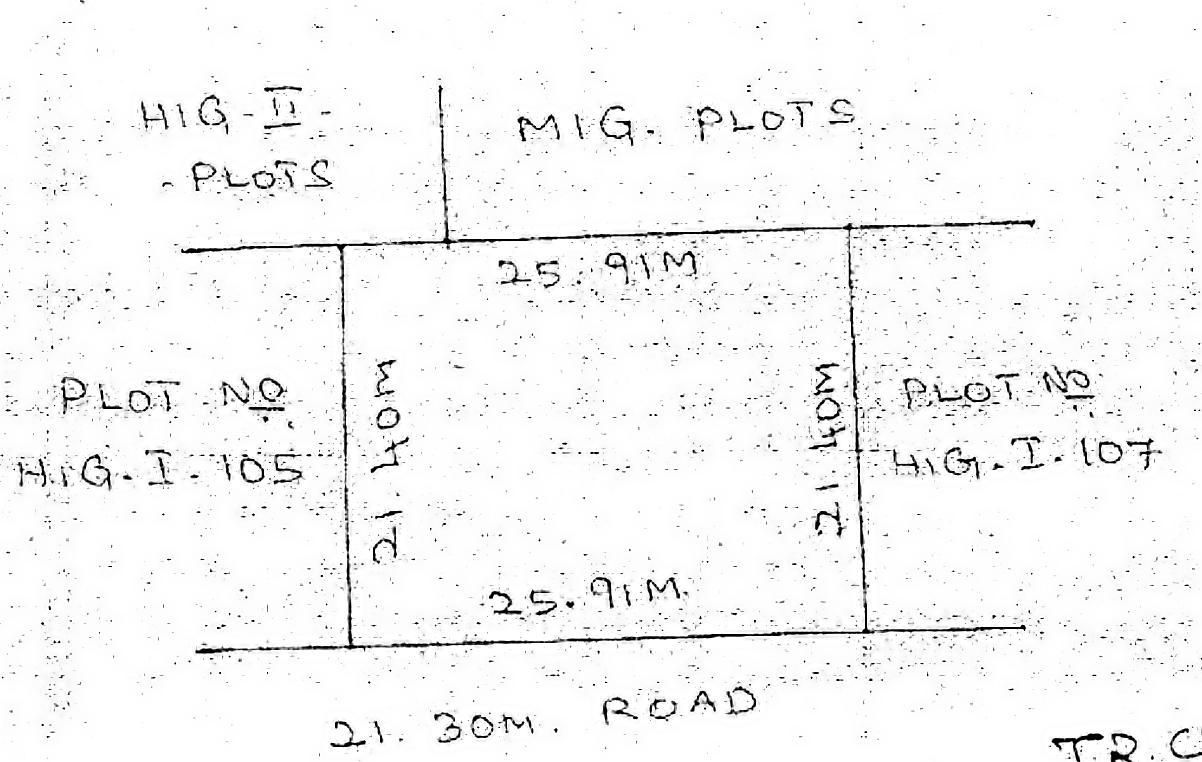 HIG-II-
PLOTS
MIG. PLOTS
25.91M
PLOT NO
HIG.I-105
21.40M
21.40M
PLOT NO
HIG.I.107
25.91M.
21.30M. ROAD
T.R.C